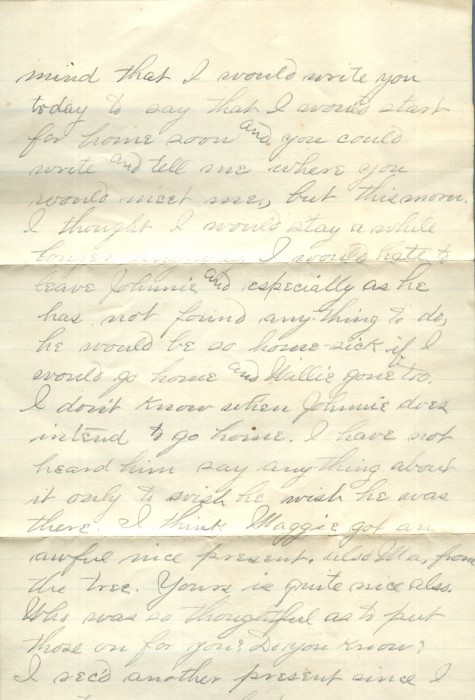 mind that I would write you
today to say that I would start
for home soon and you could
write and tell me where you
would meet me, but this morn.
I thought I would stay a while
longer I would hate to
leave Johnnie and especially as he
has not found any-thing to do,
he would be so home-sick if I
would go home and Willie gone too.
I don't know when Johnnie does
intend to go home. I have not
heard him say anything about
it only to wish he wish he was
there. I think Maggie got an
awful nice present, also Ma, from
the tree. Yours is quite nice also.
Who was so thoughtful as to put
those on for you? Do you know?
I rec'd another present since I